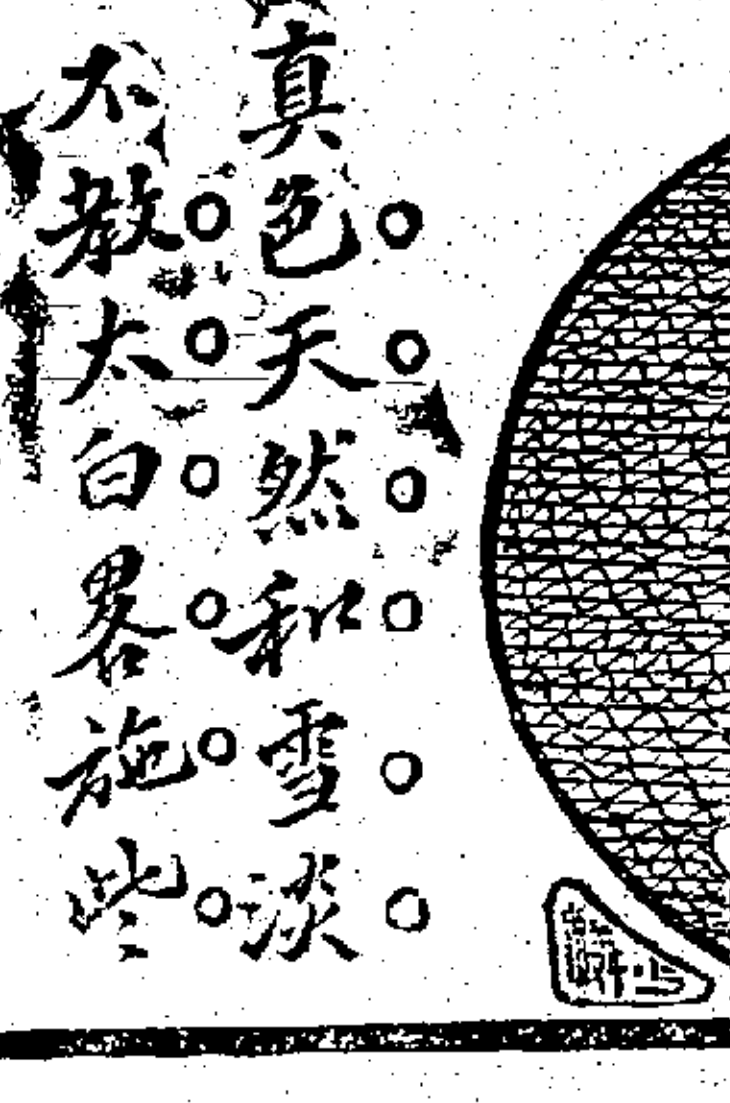 真色天然和雪淡
不教太白畧施些